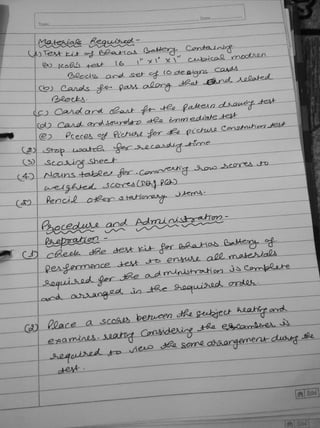 Date
Materials Required -
(1) Test kit of Bhatias Battery Containing
(a) Koh's test 16 1" x 1" x 1" cubical modsen
Blocks and set of 10 designs cards
(b) Cards for pass along that and related
Blocks.
(c) Card and chart for the pattern drawing test
(d) Card and sounds to the immediate test
(e) Pieces of Picture for the picture Construction test
(2) stop watch for recording time
(3) scoring sheet
(4) Norms tables for converting row scores to
weighted scores (PQ/
(5) Pencil other stationary items.
Procedure and Administration -
Prepration -
(1) check the test kit for Bhatias Battery of
performence test to ensure all materials
required for the administration is complete
and arranged in the required order.
(2) Place a between the subject and
examines considering the is
required to view the same arrangement during the
test.